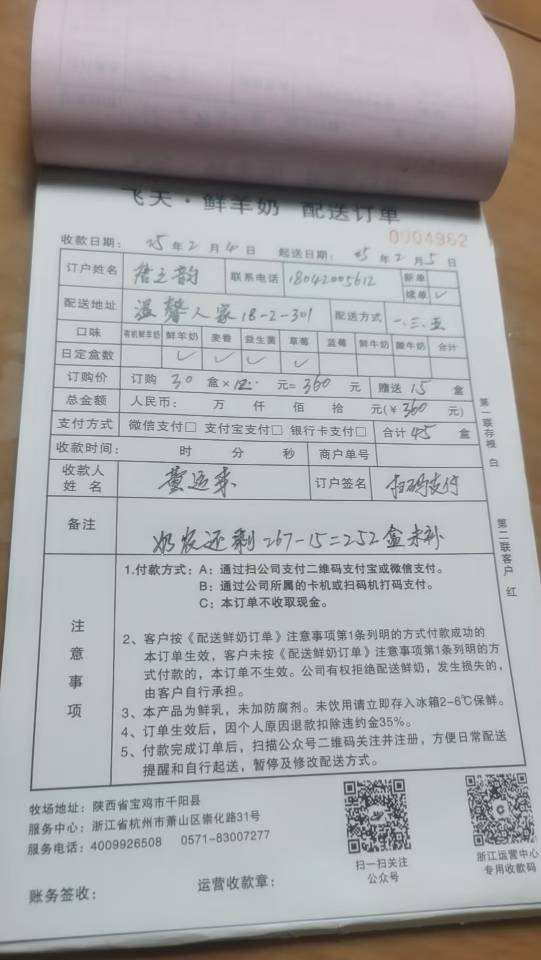 飞天·鲜羊奶 配送订单
0004962
收款日期: 25 年 2 月 4 日 起送日期: 25 年 2 月 5 日
订户姓名 联系电话 18042005612 新单
续单 ✓
配送地址 温馨人家 18-2-301 配送方式 一、三、五
口味 有机鲜羊奶 鲜羊奶 麦香 益生菌 草莓 蓝莓 鲜牛奶 酸牛奶 合计
日定盒数 ✓ ✓ ✓ ✓
订购价 订购 30 盒× 元= 360 元 赠送 15 盒
总金额 人民币: 万 仟 佰 拾 元(¥ 360 元)
支付方式 微信支付□ 支付宝支付□ 银行卡支付□ 合计 45 盒
收款时间: 时 分 秒 商户单号
收款人姓名 黄运来 订户签名 扫码支付
备注 奶农还剩 267-15=252 盒未补
第一联存根 白
第二联客户 红
注意事项
1.付款方式: A: 通过扫公司支付二维码支付宝或微信支付。
B: 通过公司所属的卡机或扫码机打码支付。
C: 本订单不收取现金。
2、客户按《配送鲜奶订单》注意事项第1条列明的方式付款成功的
本订单生效，客户未按《配送鲜奶订单》注意事项第1条列明的方
式付款的，本订单不生效。公司有权拒绝配送鲜奶，发生损失的，
由客户自行承担。
3、本产品为鲜乳，未加防腐剂。未饮用请立即存入冰箱2-6℃保鲜。
4、订单生效后，因个人原因退款扣除违约金35%。
5、付款完成订单后，扫描公众号二维码关注并注册，方便日常配送
提醒和自行起送，暂停及修改配送方式。
牧场地址: 陕西省宝鸡市千阳县
服务中心: 浙江省杭州市萧山区崇化路31号
服务电话: 4009926508 0571-83007277
扫一扫关注
公众号
浙江运营中心
专用收款码
账务签收: 运营收款章: